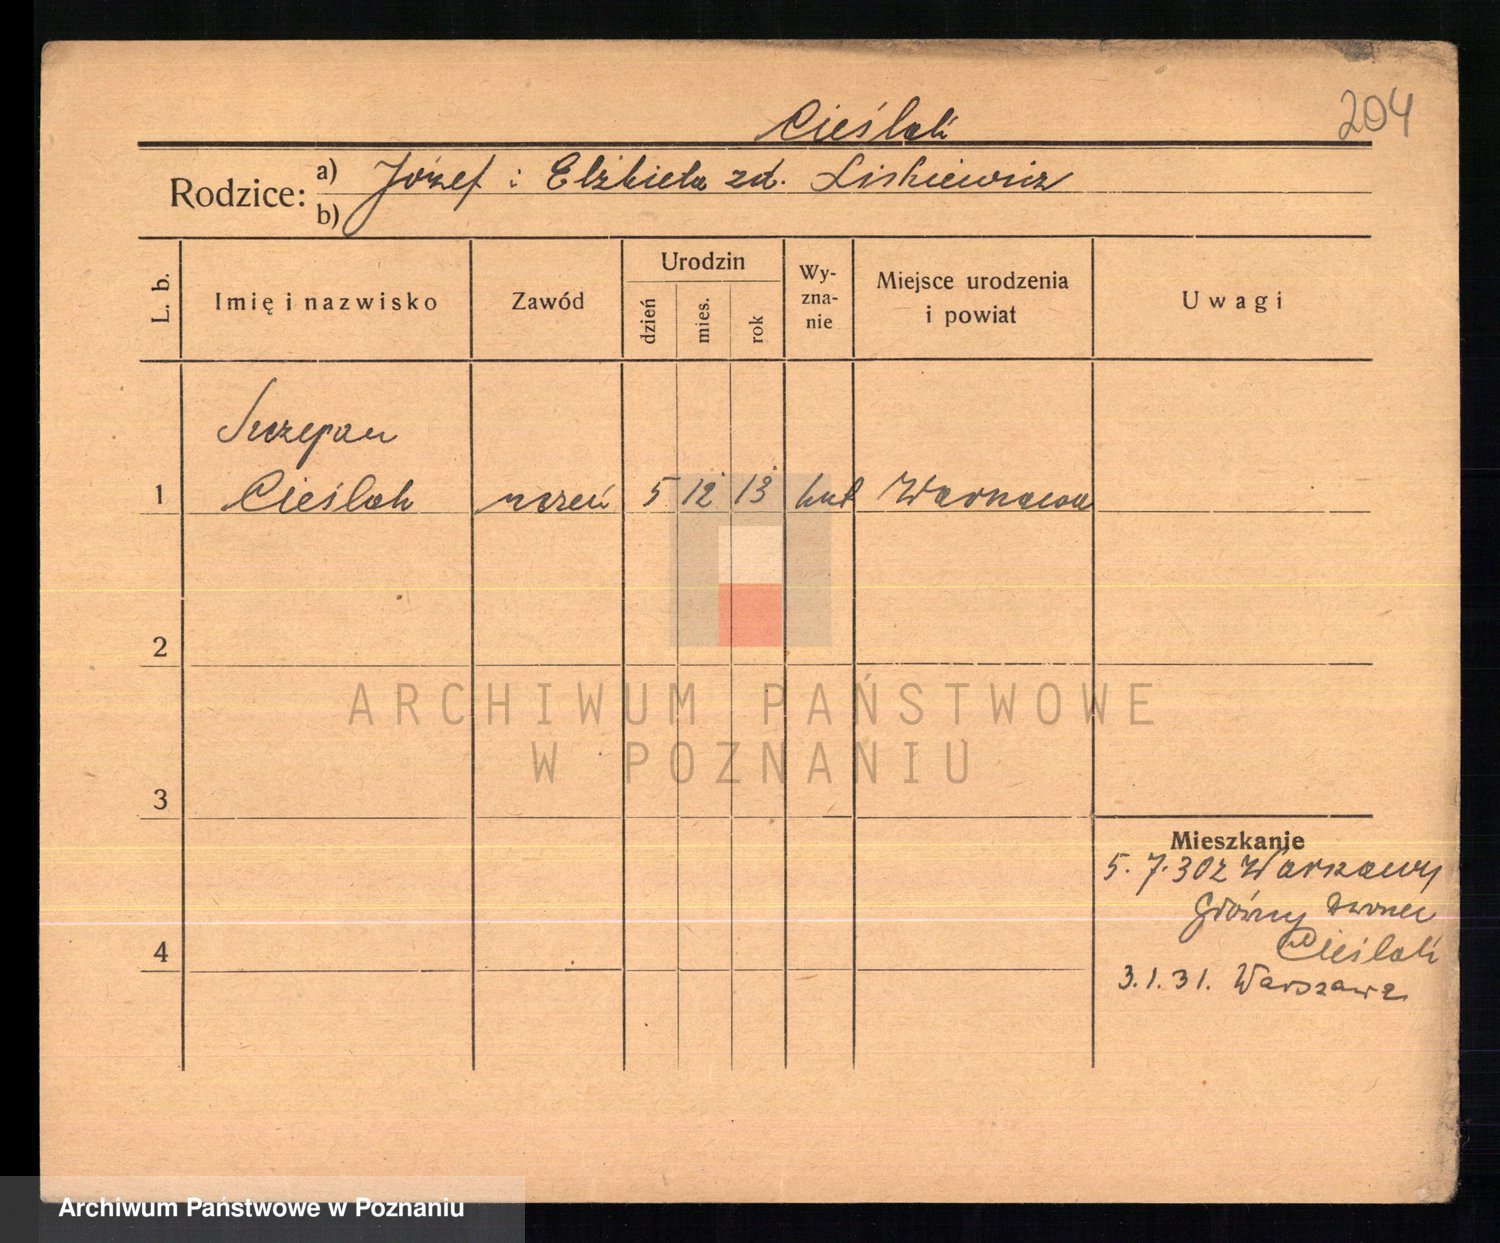 Cieślak
204
Rodzice:
a) Józef i Elżbieta zd. Liskiewicz
b)
L. b.
Imię i nazwisko
Zawód
Urodzin
dzień
mies.
rok
Wy-
zna-
nie
Miejsce urodzenia
i powiat
Uwagi
Szczepan
1 Cieślak uczeń 5 12 13 kat Warszawa
2
3
4
Mieszkanie
5.7.30 z Warszawy
Główny
Cieślak
3.1.31. Warszawa
ARCHIWUM PAŃSTWOWE
W POZNANIU
Archiwum Państwowe w Poznaniu